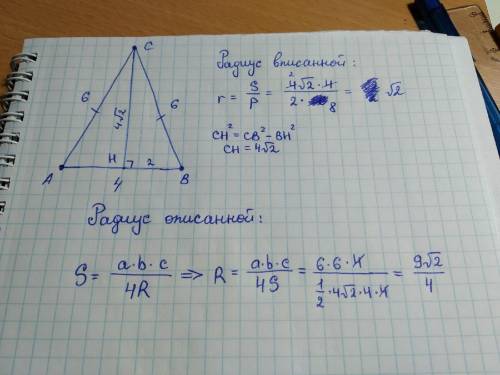 C
6
6
4√2
A
H
2
B
4
Радиус вписанной:
r = S/P = (4√2 · 4)/(2 · 8) = √2
2
CH² = CB² - BH²
CH = 4√2
Радиус описанной:
S = a·b·c/4R ⇒ R = a·b·c/4S = 6·6·4/(1/2 · 4√2 · 4 · 4) = 9√2/4